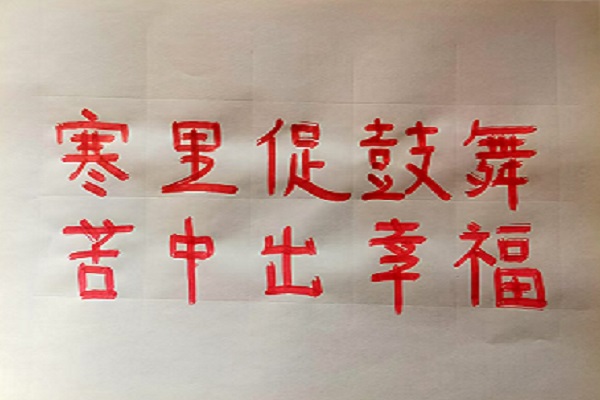 寒里促鼓舞
苦中出幸福